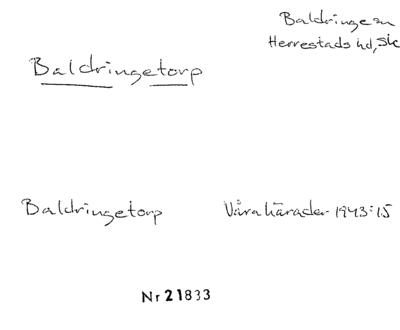 Baldringe sn
Herrestads hd, Sk
Baldringetorp
Baldringetorp Våra härader 1943:15
Nr 21833